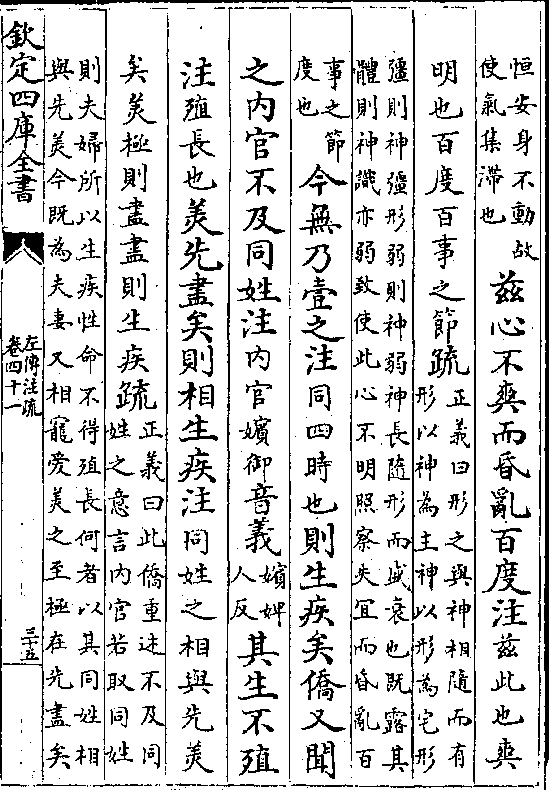 恒安身不動故
使氣集滯也
兹心不爽而昏亂百度注兹此也爽
明也百度百事之節疏
正義曰形之與神相隨而有
形以神為主神以形為宅形
彊則神彊形弱則神弱神長隨形而盛衰也既露其
體則神識亦弱致使此心不明照察失宜而昏亂百
事之節
度也
今無乃壹之注同四時也則生疾矣僑又聞
之内官不及同姓注内官嬪御音義
嬪婢
人反
其生不殖
注殖長也美先盡矣則相生疾注同姓之相與先美
矣美極則盡盡則生疾疏
正義曰此僑重述不及同
姓之意言内官若取同姓
則夫婦所以生疾性命不得殖長何者以其同姓相
與先美今既為夫妻又相寵愛美之至極在先盡矣
欽定四庫全書
左傳注疏
卷四十一
三十五